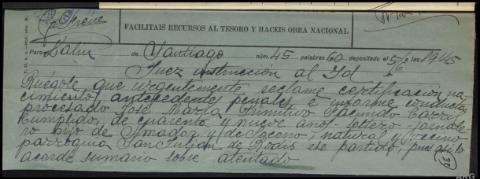 FACILITAIS RECURSOS AL TESORO Y HACEIS OBRA NACIONAL
Para Lalin de Santiago núm. 45 palabras 60 depositado el 5/6 a las 19'45
Juez instrucción al Id
Ruégole, que urgentemente, reclame certificación na-
cimiento, antecedentes penales e informe conducta
procesado José María Primitivo Facundo
Cumplido, de cuarenta y nueve años, soltero, jornale-
ro hijo de Amador y de Socorro, natural y vecino
parroquia San Julian de Rodis ese partido, pues así lo
acordé sumario sobre atentado